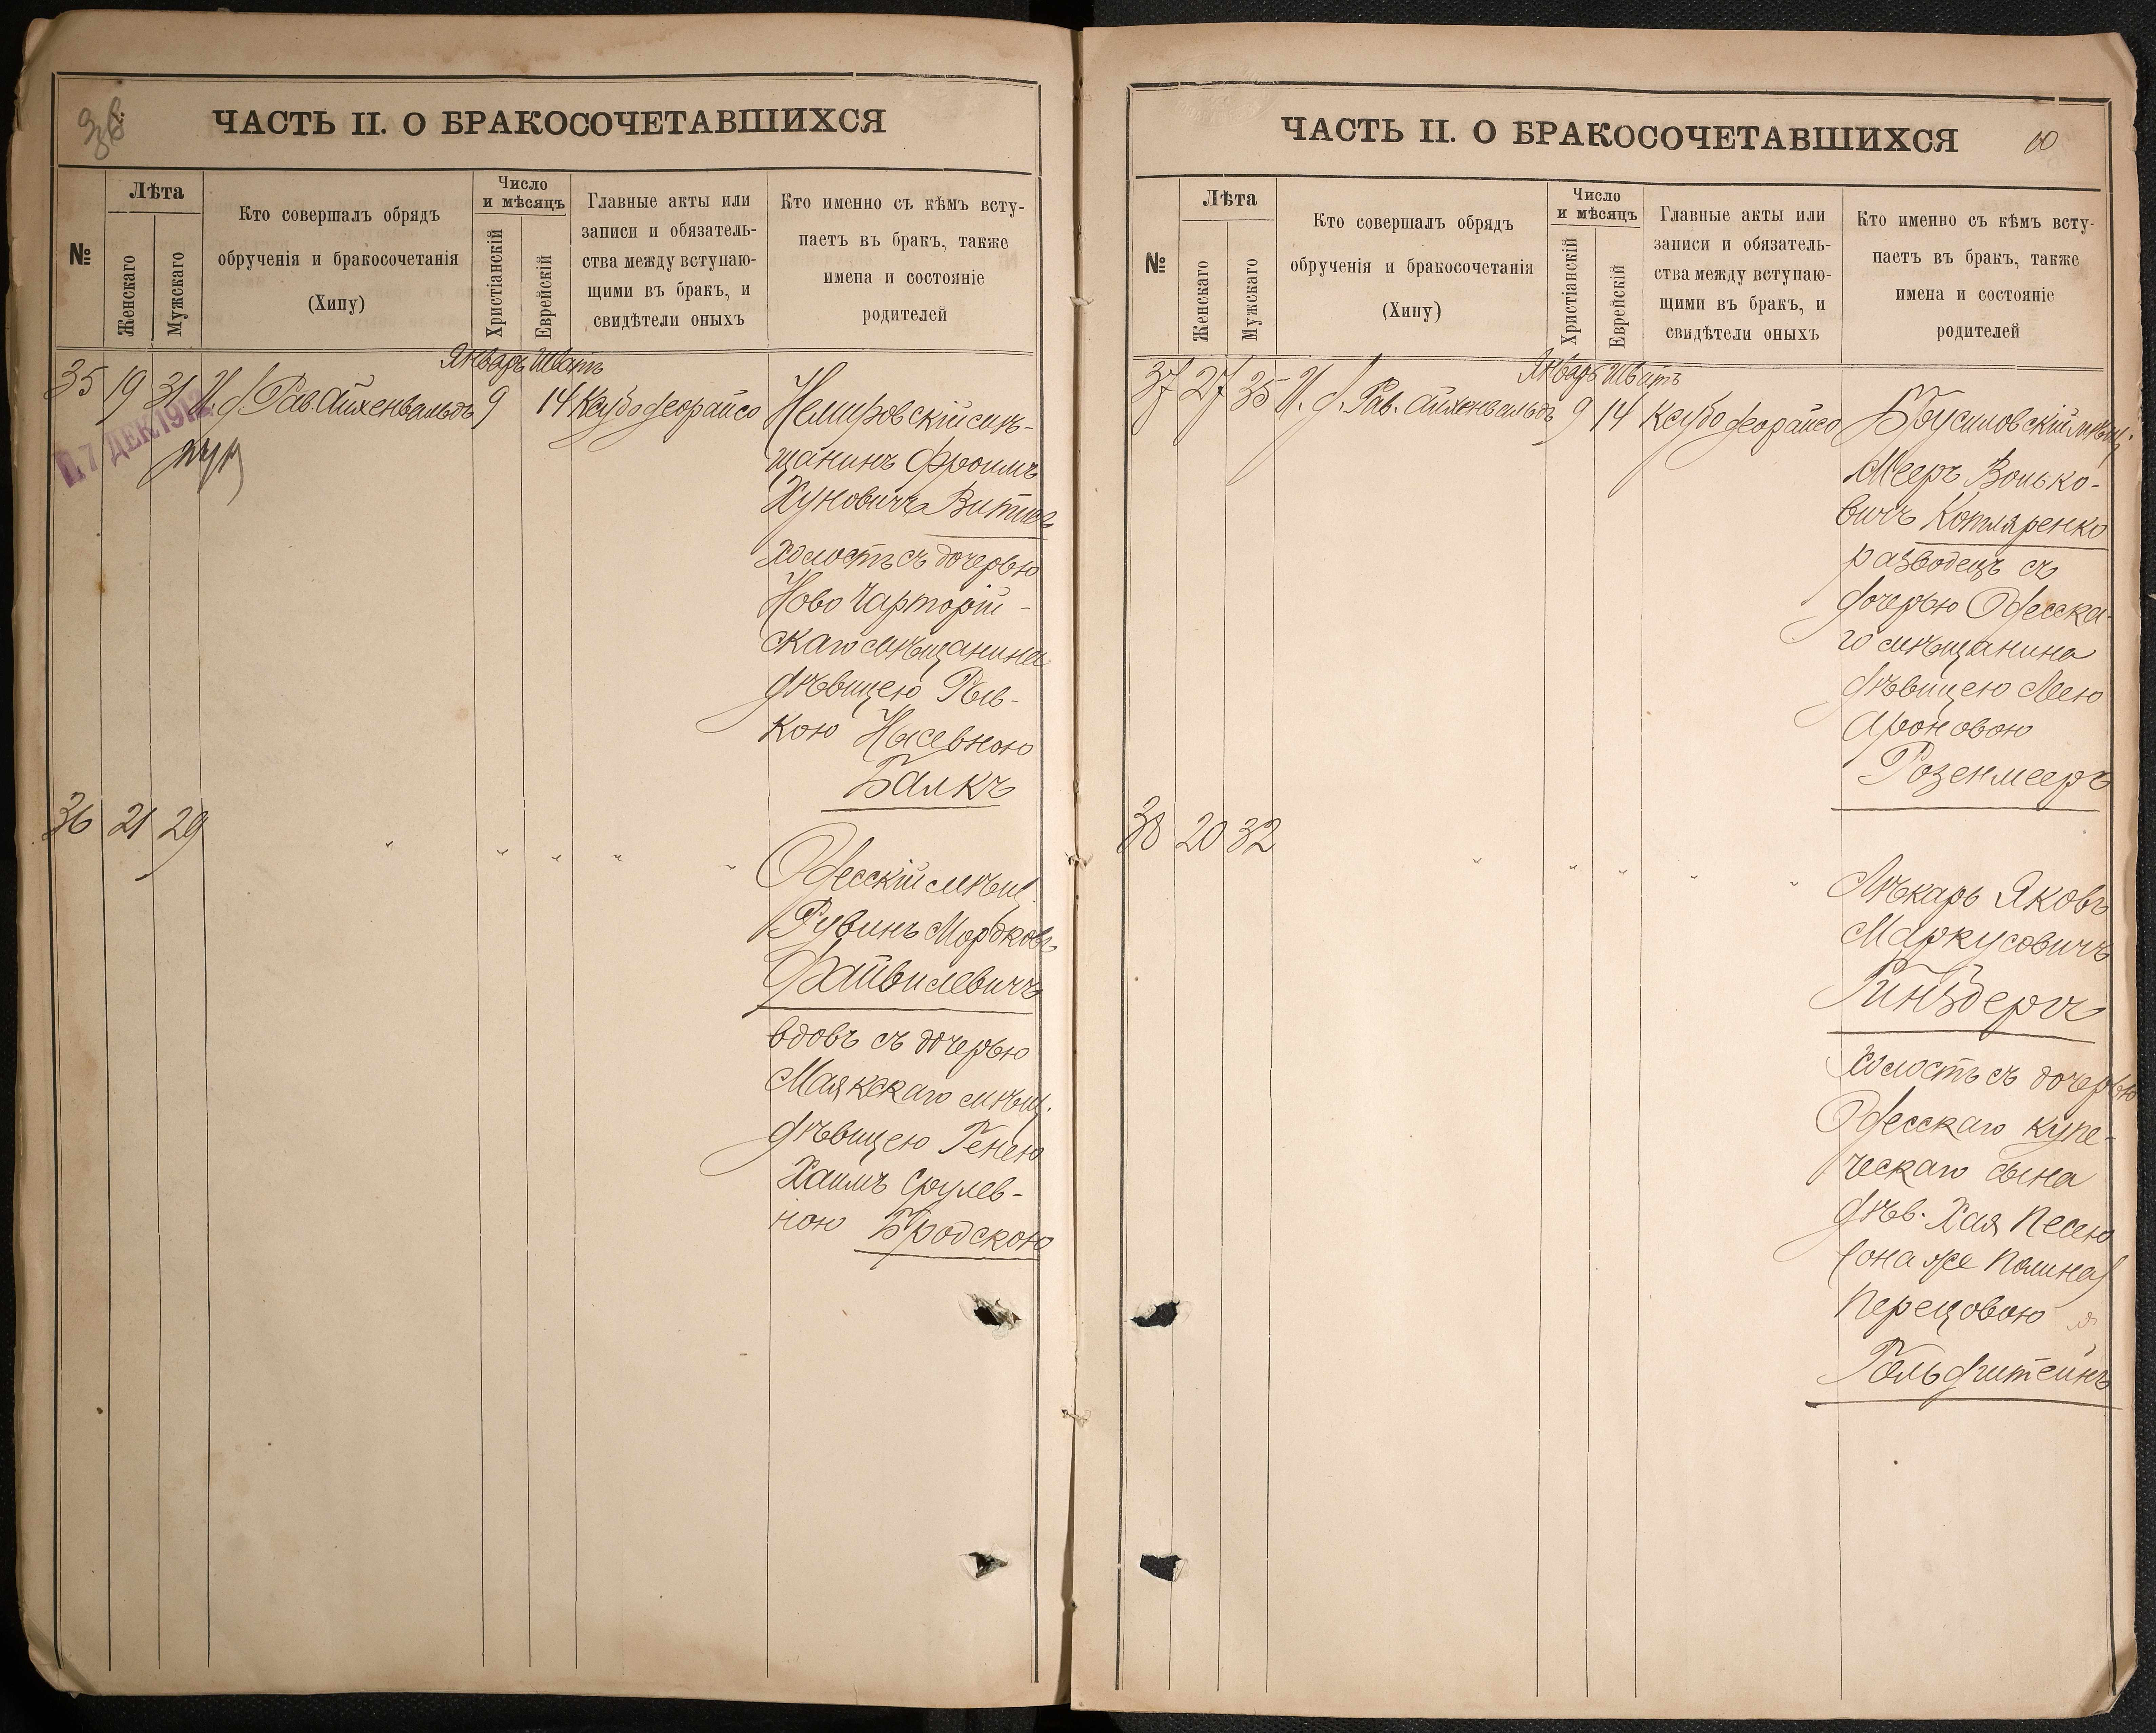 38
ЧАСТЬ II. О БРАКОСОЧЕТАВШИХСЯ
№
Лѣта
Женскаго
Мужскаго
Кто совершалъ обрядъ
обрученія и бракосочетанія
(Хипу)
Число
и мѣсяцъ
Христіанскій
Еврейскій
Главные акты или
записи и обязатель-
ства между вступаю-
щими въ бракъ, и
свидѣтели оныхъ
Кто именно съ кѣмъ всту-
паетъ въ бракъ, также
имена и состояніе
родителей
Январь Шватъ
35 19 31 И. д. Рав. Айхенвальдъ 9 14 Ксубо деорайсо
П. 7 ДЕК 1912
Немировскій мѣ-
щанинъ Фроимъ
Хуновичъ Витисъ
холостъ съ дочерью
Ново Чарторій-
скаго мѣщанина
дѣвицею Рыв-
кою Нысевною
Балкъ
36 21 29 " " " " "
Одесскій мѣщ.
Рувинъ Мордковъ
Файвилевичъ
вдовъ съ дочерью
Маякскаго мѣщ.
дѣвицею Генею
Хаимъ Срулев-
ною Бродскою
ЧАСТЬ II. О БРАКОСОЧЕТАВШИХСЯ
60
№
Лѣта
Женскаго
Мужскаго
Кто совершалъ обрядъ
обрученія и бракосочетанія
(Хипу)
Число
и мѣсяцъ
Христіанскій
Еврейскій
Главные акты или
записи и обязатель-
ства между вступаю-
щими въ бракъ, и
свидѣтели оныхъ
Кто именно съ кѣмъ всту-
паетъ въ бракъ, также
имена и состояніе
родителей
Январь Шватъ
37 27 35 И. д. Рав. Айхенвальдъ 9 14 Ксубо деорайсо
Брусиловскій мѣщ.
Мееръ Волько-
вичъ Котляренко
разводецъ съ
дочерью Одесска-
го мѣщанина
дѣвицею Леею
Ароновою
Розенмееръ
38 20 32 " " " " "
Лѣкарь Яковъ
Маркусовичъ
Гинзбергъ
холостъ съ дочерью
Одесскаго купе-
ческаго сына
дѣв. Хая Песею
(она же Полина)
Перецовою
Гольдштейнъ